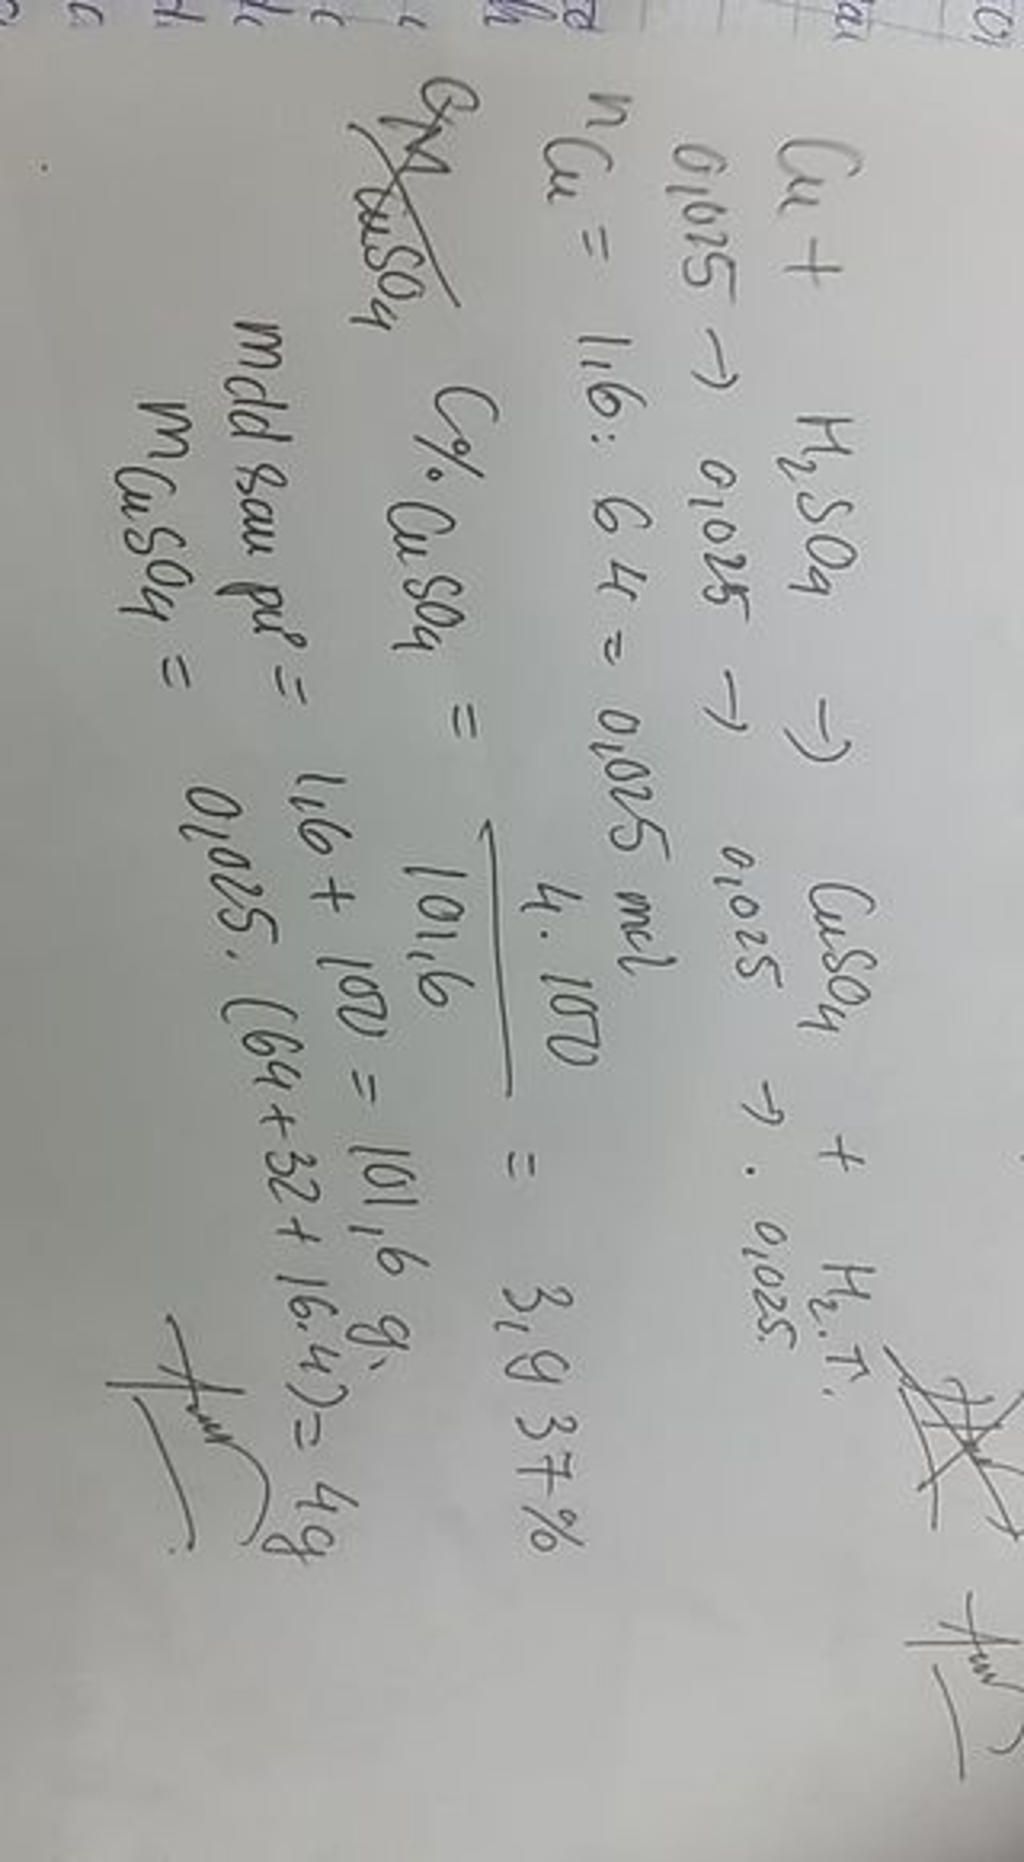 Cu + H2SO4 → CuSO4 + H2.↑.
0,025 → 0,025 → 0,025 → . 0,025.
nCu = 1,6 : 64 = 0,025 mol
CuSO4
C% CuSO4 = 4.100 / 101,6 = 3,937%
mdd sau pứ = 1,6 + 100 = 101,6 g.
mCuSO4 = 0,025. (64+32+16.4) = 4g